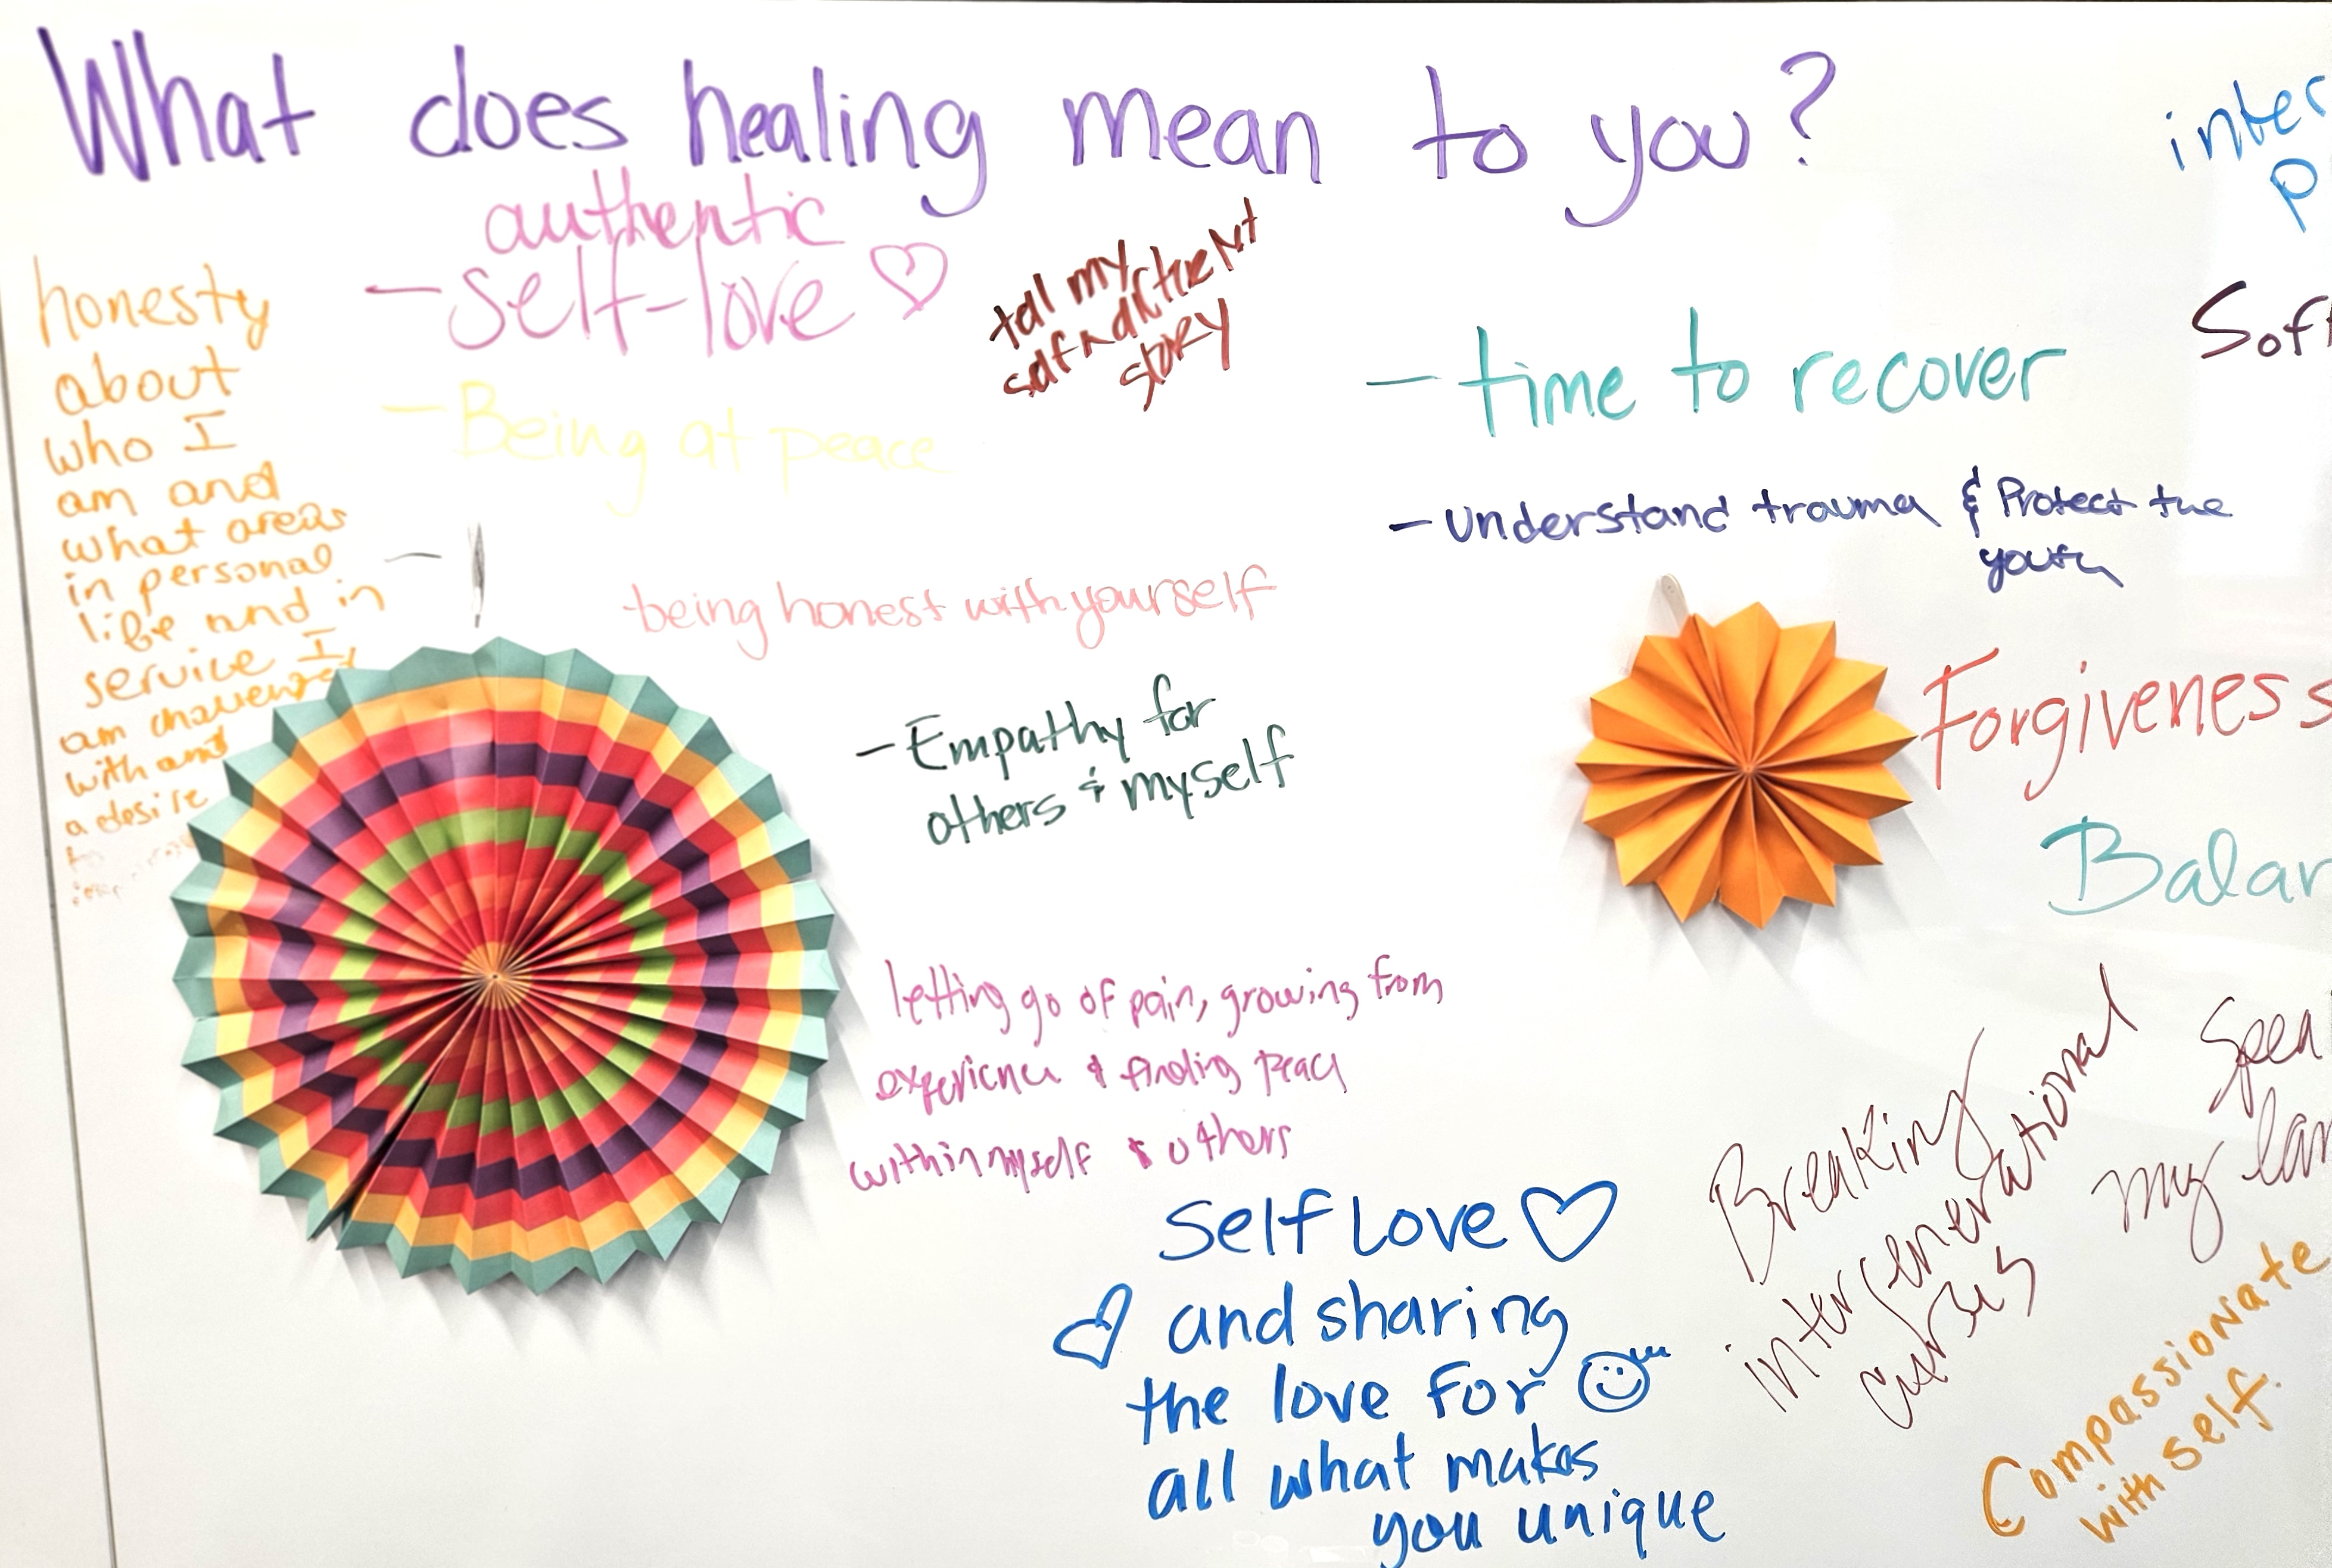 What does healing mean to you?
authentic
- self-love
honesty
about
who I
am and
what areas
in personal
life and in
service I
am
with and
a desire
- Being at peace
tell my
self a different
story
being honest with yourself
- Empathy for
others & myself
letting go of pain, growing from
experience & finding peace
within myself & others
Self Love
and sharing
the love for
all what makes
you unique
inter
p
Soft
- time to recover
- understand trauma & Protect the
youth
Forgiveness
Balan
Breaking
intergenerational
curses
Spea
my lan
Compassionate
with self.